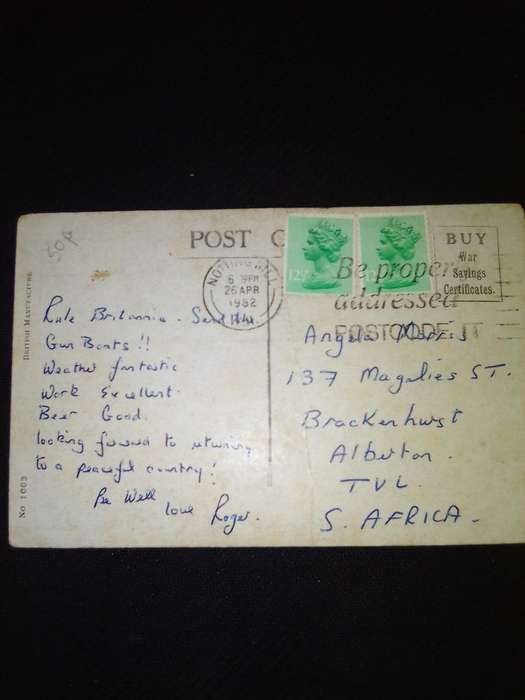 50p
POST C
BUY
War
Savings
Certificates.
NOTTING HILL
6 19PM
26 APR
1982
12½
Be properly
addressed
POSTCODE IT
BRITISH MANUFACTURE
No 1003
Rule Britannia. Send the
Gun Boats !!
Weather fantastic
Work Excellent.
Beer Good.
looking forward to returning
to a peaceful country!
Be Well
love Roger.
Angela
137 Magalies ST.
Brackenhurst
Alberton.
TVL.
S. AFRICA.